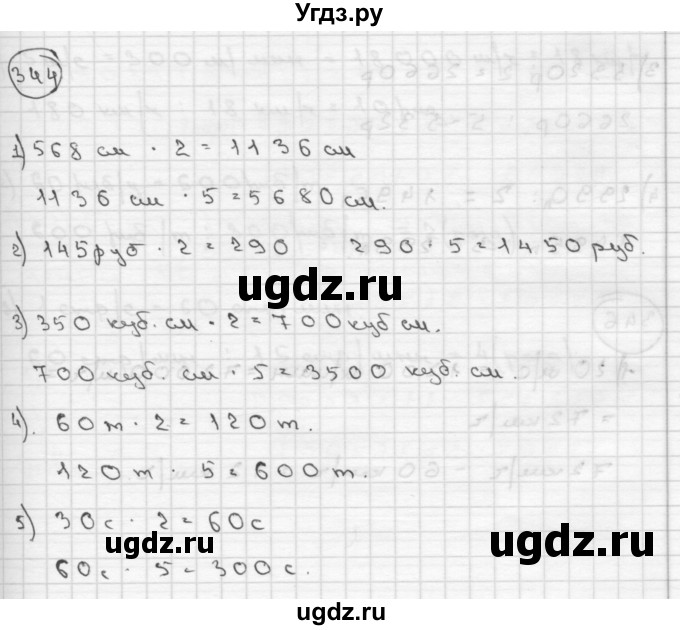 Угдз.ру
344
1) 568 см · 2 = 1136 см
1136 см · 5 = 5680 см.
2) 145 руб · 2 = 290 290 · 5 = 1450 руб.
ugdz.ru
3) 350 куб. см · 2 = 700 куб см.
700 куб. см · 5 = 3500 куб. см.
4). 60 т · 2 = 120 т.
120 т · 5 = 600 т.
5) 30 с · 2 = 60 с
ugdz.ru
60 с · 5 = 300 с.
ugdz.ru